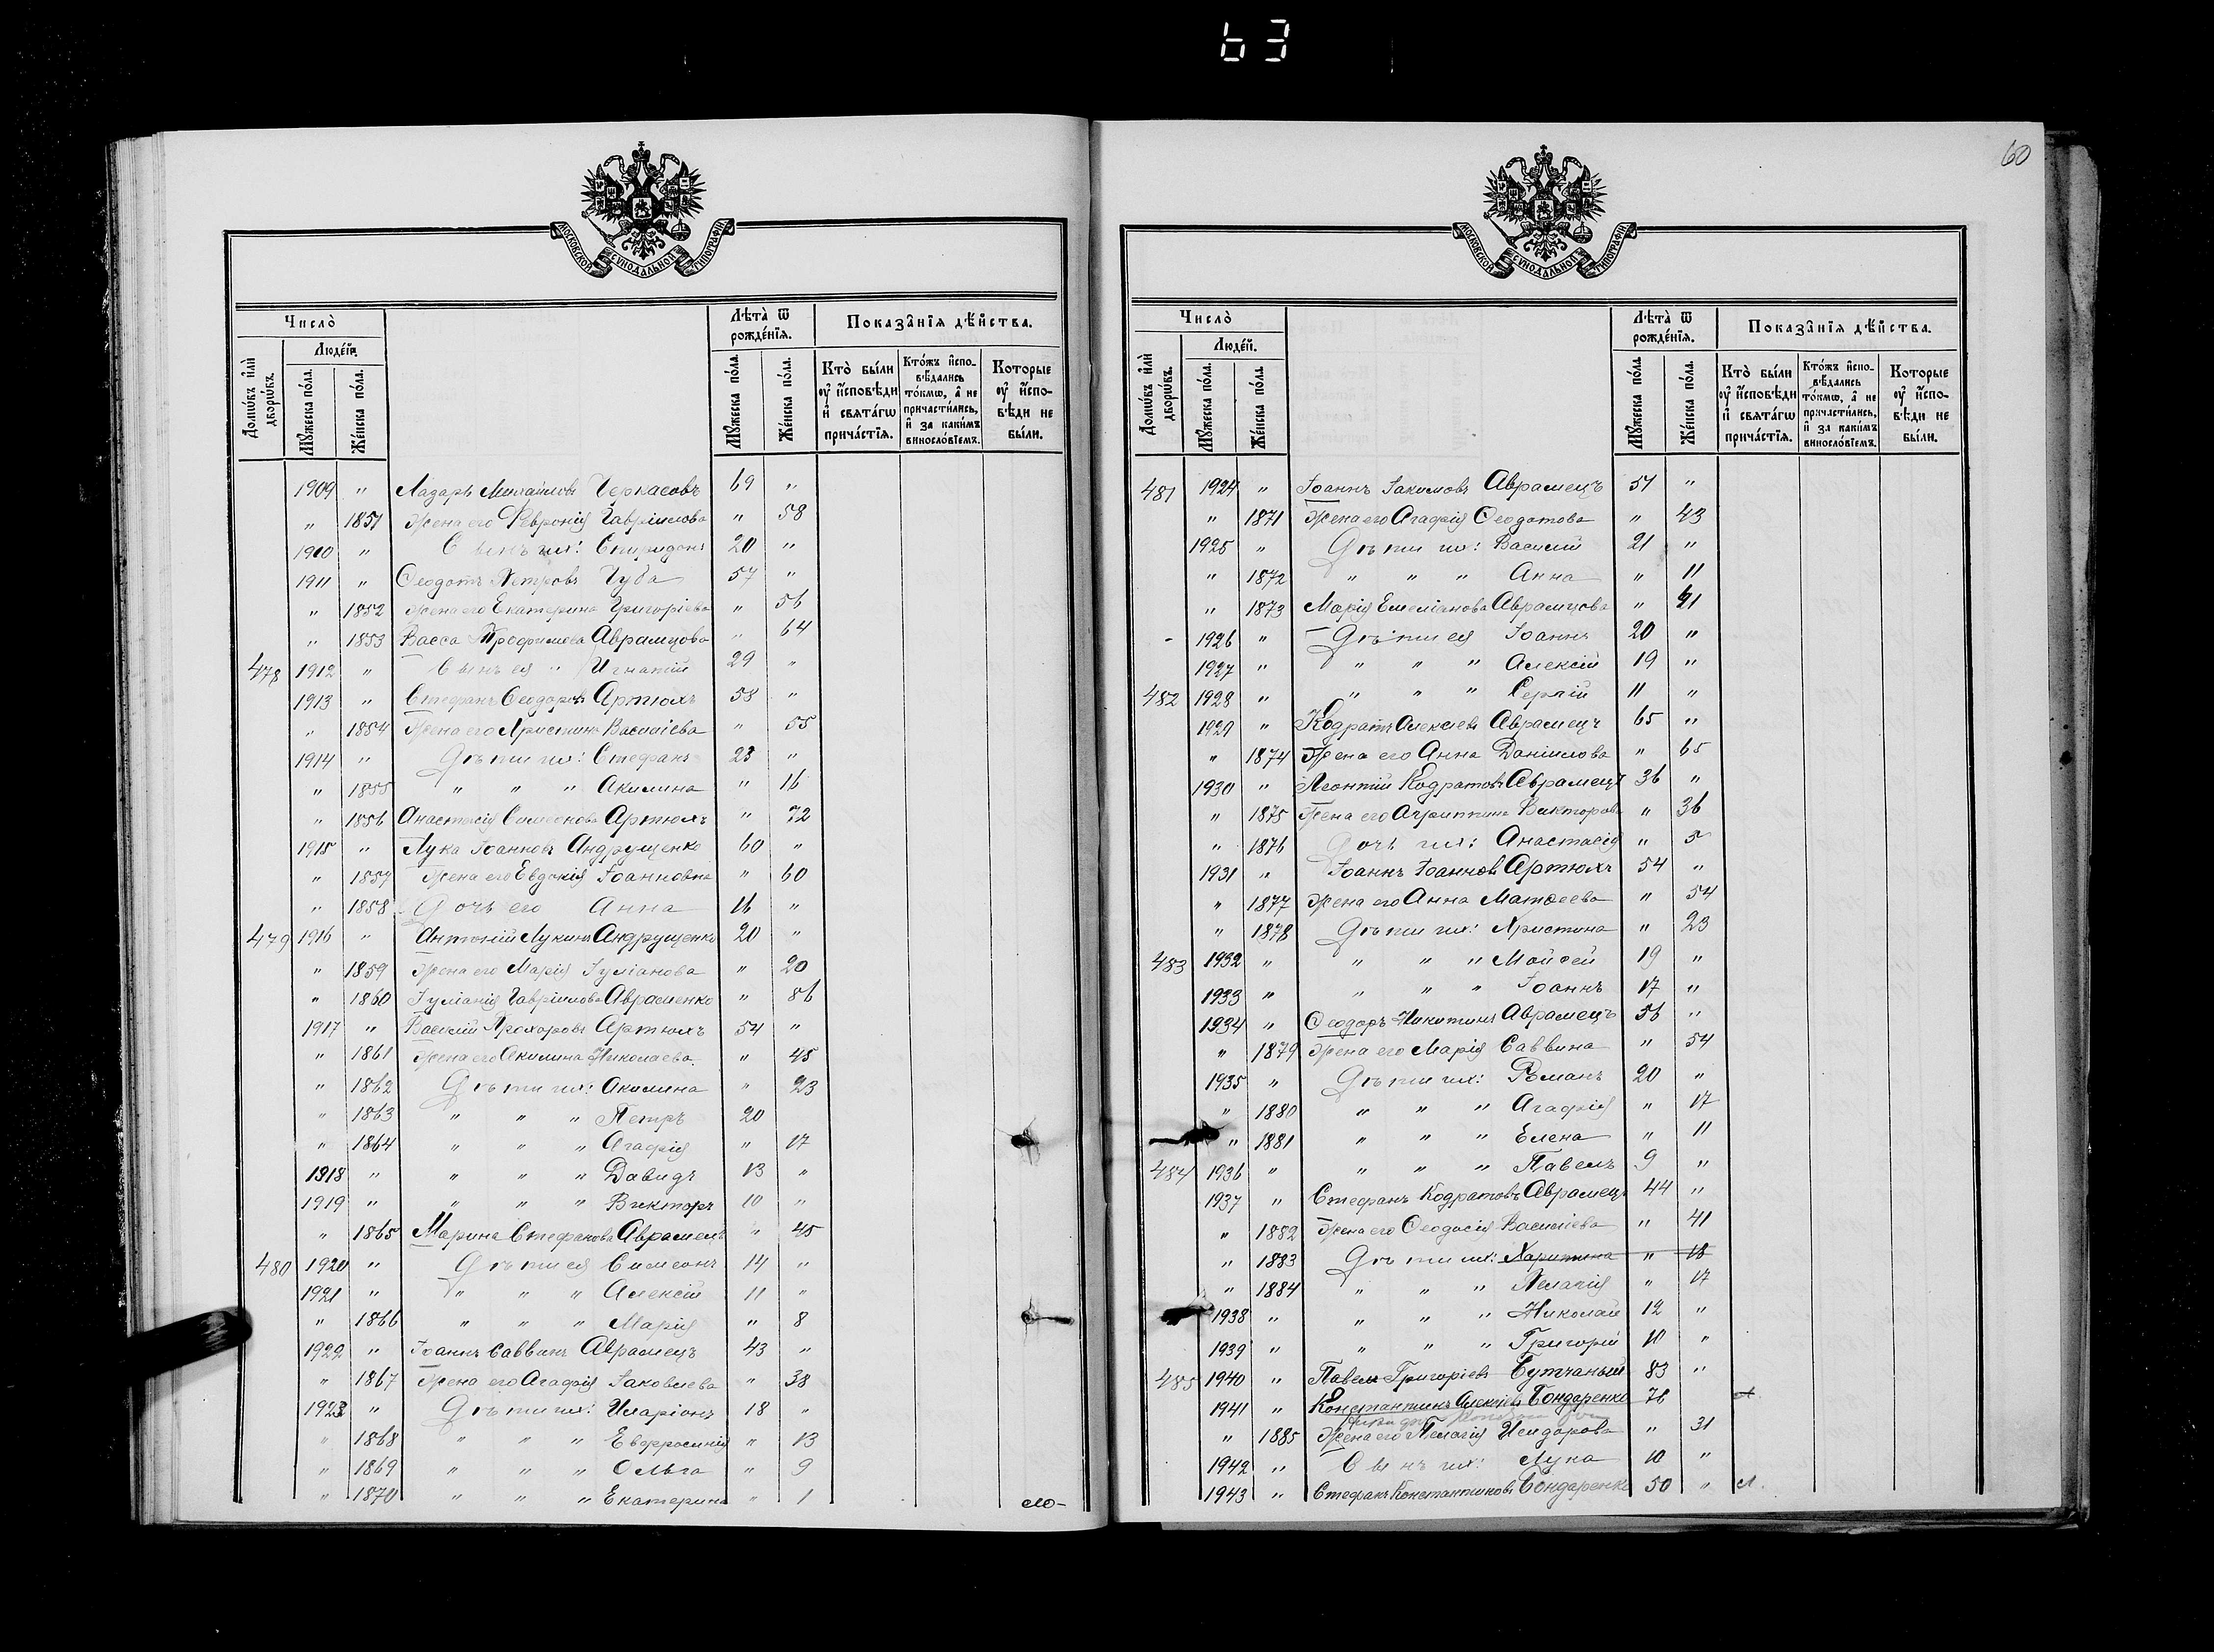 63
60
МОСКОВСКОЙ СѴНОДАЛЬНОЙ ТИПОГРАФІИ
Число̀
Людéй.
Домѡ́въ и҆лѝ дворѡ́въ.
Мꙋ́жеска по́ла.
Же́нска по́ла.
Лѣ́та ѿ рожде́нїѧ.
Мꙋ́жеска по́ла.
Же́нска по́ла.
Показа̑нїѧ дѣ́йства.
Кто̀ бы́ли ᲂу҆ и҆́сповѣди и҆ свѧта́гѡ прича́стїѧ.
Кто́жъ и҆сповѣ́дались то́кмѡ, а҆ не причасти́лись, и҆ за каки́мъ виносло́вїемъ.
Которые ᲂу҆ и҆́сповѣди не бы́ли.
1909 " Лазарь Михайловъ Черкасовъ 69 "
" 1851 Жена его Феврония Гавріилова " 58
1910 " Сынъ их: Спиридонъ 20 "
1911 " Ѳеодотъ Петровъ Чуба 57 "
" 1852 Жена его Екатерина Григоріева " 56
" 1853 Васса Трофимова Аврамцова " 64
478 1912 " Сынъ ея " Игнатій 29 "
1913 " Стефанъ Ѳеодоровъ Артюхъ 58 "
" 1854 Жена его Христина Василіева " 55
1914 " Дѣти их: Стефанъ 23 "
" 1855 " " " Акилина " 16
" 1856 Анастасія Симеонова Артюхъ " 72
1915 " Лука Іоанновъ Андрущенко 60 "
" 1857 Жена его Евдокія Іоанновна " 60
" 1858 Дочь его Анна 16 "
479 1916 " Антоній Лукинъ Андрущенко 20 "
" 1859 Жена его Марія Іуліанова " 20
" 1860 Іуліанія Гавріилова Авраменко " 86
1917 " Василій Прохоровъ Артюхъ 54 "
" 1861 Жена его Акилина Николаева " 45
" 1862 Дѣти их: Акилина " 23
" 1863 " " " Петръ 20
" 1864 " " " Агафія " 17
1918 " " " " Давидъ 13 "
1919 " " " " Викторъ 10 "
" 1865 Марина Стефанова Аврамецъ " 45
480 1920 " Дѣти ея Симеонъ 14 "
1921 " " " " Алексій 11 "
" 1866 " " " Марія " 8
1922 " Іоаннъ Саввинъ Аврамецъ 43 "
" 1867 Жена его Агафія Іаковлева " 38
1923 " Дѣти их: Иларіонъ 18 "
" 1868 " " " Евфросинія " 13
" 1869 " " " Ольга " 9
" 1870 " " " Екатерина " 1
Число̀
Людéй.
Домѡ́въ и҆лѝ дворѡ́въ.
Мꙋ́жеска по́ла.
Же́нска по́ла.
МОСКОВСКОЙ СѴНОДАЛЬНОЙ ТИПОГРАФІИ
Лѣ́та ѿ рожде́нїѧ.
Мꙋ́жеска по́ла.
Же́нска по́ла.
Показа̑нїѧ дѣ́йства.
Кто̀ бы́ли ᲂу҆ и҆́сповѣди и҆ свѧта́гѡ прича́стїѧ.
Кто́жъ и҆сповѣ́дались то́кмѡ, а҆ не причасти́лись, и҆ за каки́мъ виносло́вїемъ.
Которые ᲂу҆ и҆́сповѣди не бы́ли.
481 1924 " Іоаннъ Іакимовъ Аврамецъ 51 "
" 1871 Жена его Агафія Ѳеодотова " 43
1925 " Дѣти их: Василій 21 "
" 1872 " " " Анна " 11
" 1873 Марія Емеліанова Аврамцова "
1926 " Дѣти ея Іоаннъ 20 "
1927 " " " " Алексій 19 "
482 1928 " " " " Сергій 11 "
1929 " Кодратъ Алексіевъ Аврамецъ 65 "
" 1874 Жена его Анна Даніилова " 65
1930 " Леонтій Кодратовъ Аврамецъ 36 "
" 1875 Жена его Агриппина Викторова " 36
" 1876 Дочь их: Анастасія " 5
1931 " Іоаннъ Іоанновъ Артюхъ 54 "
" 1877 Жена его Анна Матѳеева " 54
" 1878 Дѣти их: Христина " 23
483 1932 " " " " Мойсей 19 "
1933 " " " " Іоаннъ 17 "
1934 " Ѳеодоръ Никитинъ Аврамецъ 56 "
" 1879 Жена его Марія Саввина " 54
1935 " Дѣти их: Романъ 20 "
" 1880 " " " Агафія " 17
" 1881 " " " Елена " 11
484 1936 " " " " Павелъ 9 "
1937 " Стефанъ Кодратовъ Аврамецъ 44 "
" 1882 Жена его Ѳеодосія Василіева " 41
" 1883 Дѣти их: Харитина " 18
" 1884 " " " Пелагія " 17
1938 " " " " Николай 12 "
1939 " " " " Григорій 10 "
485 1940 " Павелъ Григоріевъ Бутчаный 83 "
1941 " Константинъ Алексіевъ Бондаренко 76
" 1885 Жена его Пелагія Исидорова " 31
1942 " Сынъ их: Лука 10 "
1943 " Стефанъ Константиновъ Бондаренко 50 "